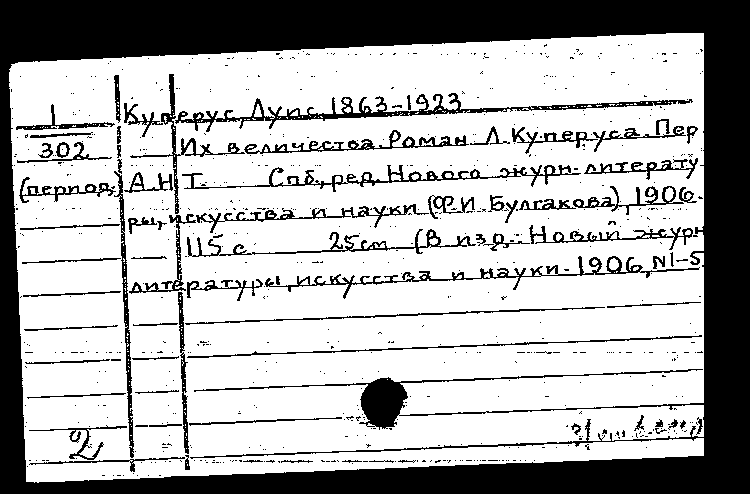 1
302
(период.)
Куперус, Луис, 1863-1923
Их величества. Роман Л. Куперуса. Пер
А.Н Т. Спб., ред. Нового журн. литерату
ры, искусства и науки (Ф.И. Булгакова), 1906.
115 с. 25 см (В изд.: Новый журн
литературы, искусства и науки. 1906, N1-5
2